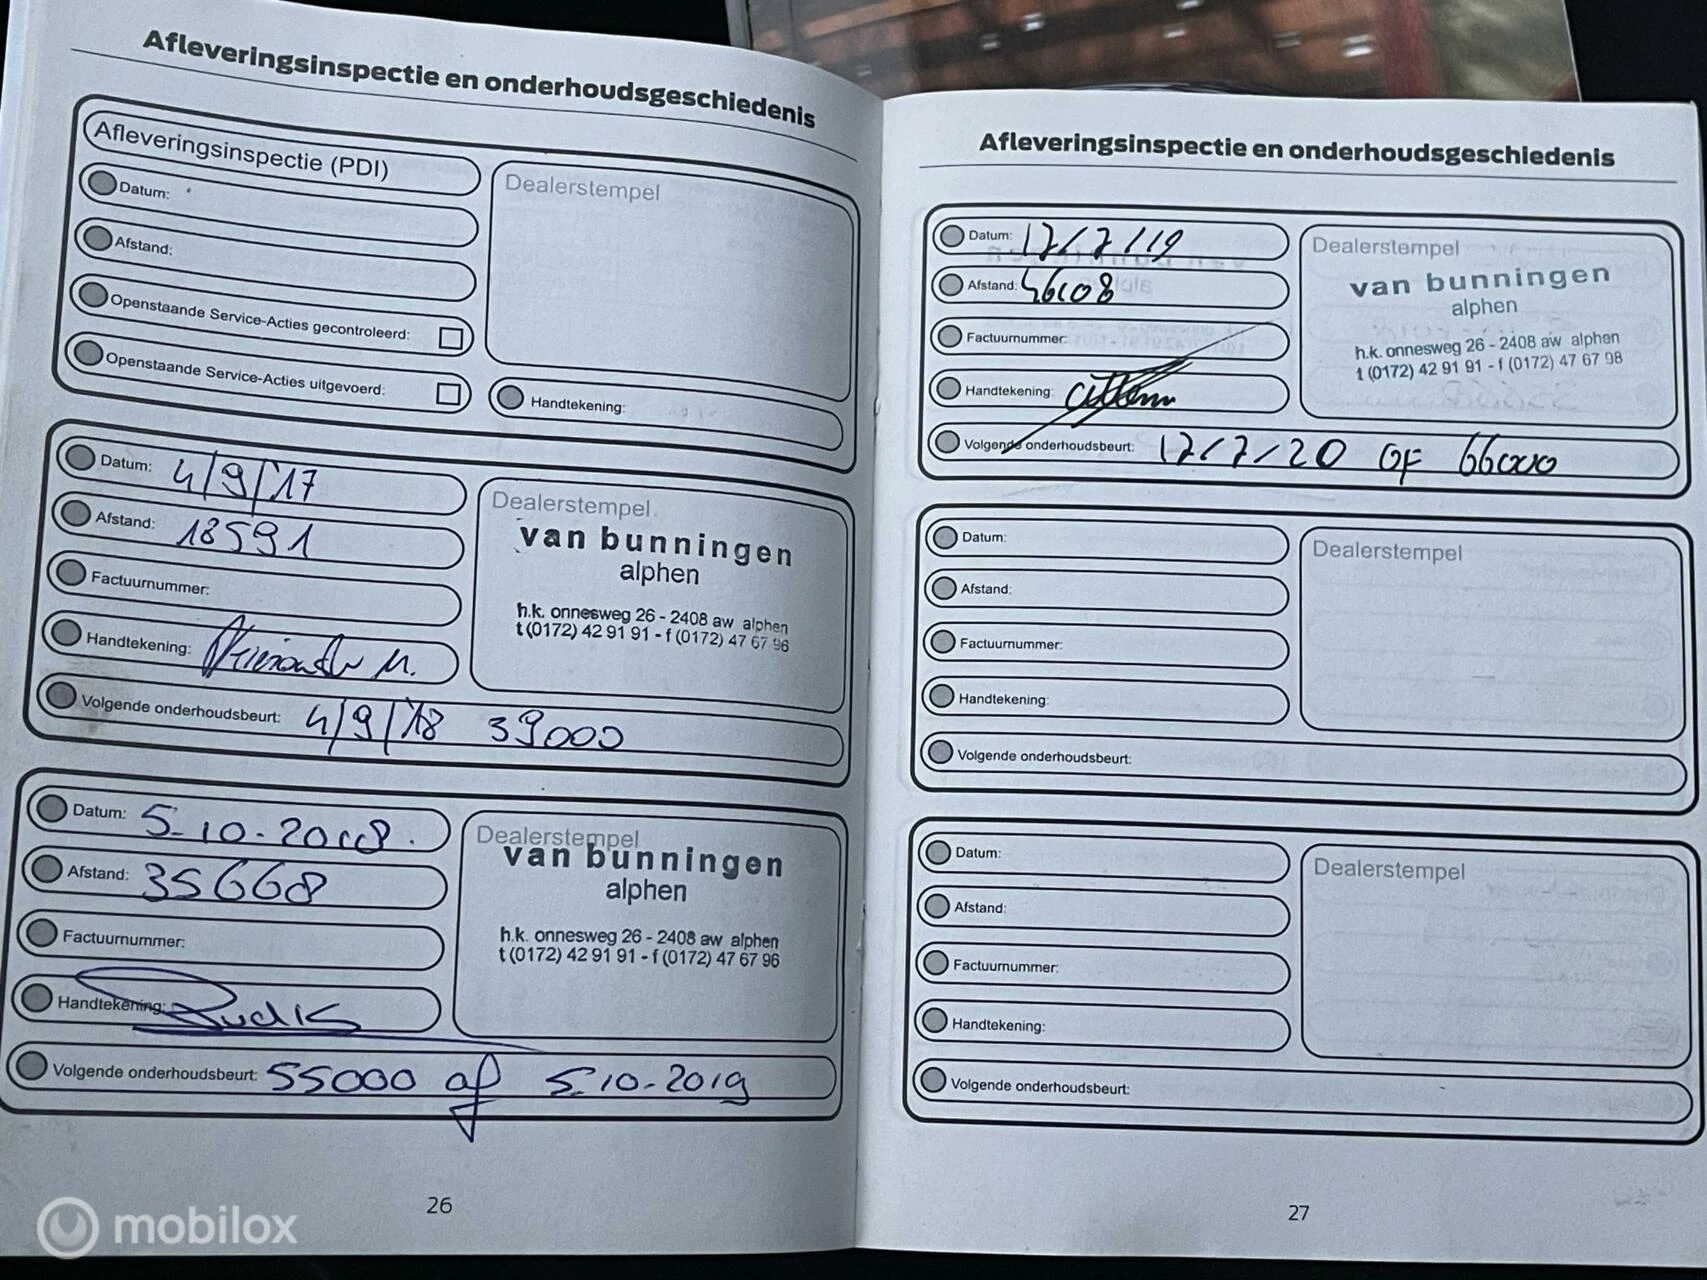 Afleveringsinspectie en onderhoudsgeschiedenis
Afleveringsinspectie (PDI)
Datum:
Afstand:
Openstaande Service-Acties gecontroleerd:
Openstaande Service-Acties uitgevoerd:
Dealerstempel
Handtekening:
Datum: 4/9/'17
Afstand: 18591
Factuurnummer:
Handtekening:
Volgende onderhoudsbeurt: 4/9/'18 39000
Dealerstempel
van bunningen
alphen
h.k. onnesweg 26 - 2408 aw alphen
t (0172) 42 91 91 - f (0172) 47 67 96
Datum: 5-10-2018.
Afstand: 35668
Factuurnummer:
Handtekening:
Volgende onderhoudsbeurt: 55000 of 5-10-2019
Dealerstempel
van bunningen
alphen
h.k. onnesweg 26 - 2408 aw alphen
t (0172) 42 91 91 - f (0172) 47 67 96
26
Afleveringsinspectie en onderhoudsgeschiedenis
Datum: 17/7/19
Afstand: 46108
Factuurnummer:
Handtekening:
Volgende onderhoudsbeurt: 17/7/20 OF 66000
Dealerstempel
van bunningen
alphen
h.k. onnesweg 26 - 2408 aw alphen
t (0172) 42 91 91 - f (0172) 47 67 98
Datum:
Afstand:
Factuurnummer:
Handtekening:
Volgende onderhoudsbeurt:
Dealerstempel
Datum:
Afstand:
Factuurnummer:
Handtekening:
Volgende onderhoudsbeurt:
Dealerstempel
27
mobilox